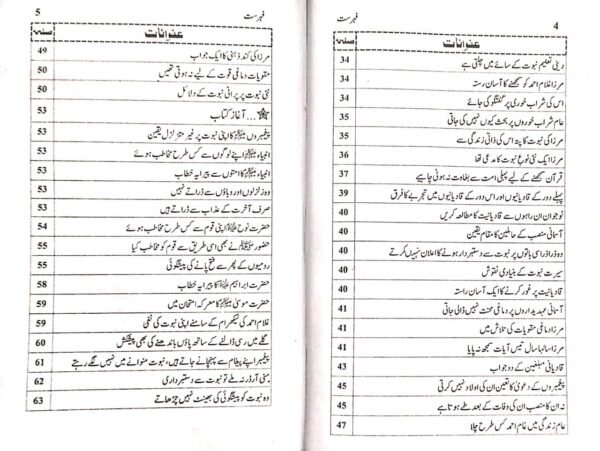 4 فہرست
صفحہ عنوانات
34 دینی تعلیم نبوت کے سائے میں چلتی ہے
34 مرزا غلام احمد کو سمجھنے کا آسان رستہ
34 اس کی شراب خوری پر گفتگو کی جائے
35 عام شراب خوروں پر بحث کیوں نہیں کی جاتی
35 مرزا کی نبوت کا پتہ اس کی ذاتی زندگی سے
36 مرزا ایک نئی نوع نبوت کا مدعی تھا
37 قرآن سمجھنے کے لیے پہلی امت سے بغاوت نہ ہونی چاہیے
39 پہلے دور کے قادیانیوں اور اس دور کے قادیانیوں میں تجربے کا فرق
40 نوجوان ان راہوں سے قادیانیت کا مطالعہ کریں
40 آسمانی منصب کے حاملین کا مقام یقین
40 وہ ذرا ذرا سی باتوں پر نبوت سے دستبردار ہونے کا اعلان نہیں کرتے
40 سیرت نبوت کے بنیادی نقوش
40 قادیانیت پر غور کرنے کا ایک آسان راستہ
41 آسمانی عہدیداروں پر دماغی محنت نہیں ڈالی جاتی
41 مرزا دماغی مقویات کی تلاش میں
41 مرزا سالہا سال تیس آیات سمجھ نہ پایا
42 قادیانی مبلغین کے دو جواب
45 پیغمبروں کے دعویٰ کا تعین ان کی اولاد نہیں کرتی
45 نہ ان کا منصب ان کی وفات کے بعد طے ہوتا ہے
47 عام زندگی میں غلام احمد کس طرح چلا
5 فہرست
صفحہ عنوانات
49 مرزا کی کند ذہنی کا ایک جواب
50 مقویات دماغی قوت کے لیے نہ ہوتی تھیں
50 نئی نبوت پر پرانی نبوت کے دلائل
53 ... آغاز کتاب
53 پیغمبروں کا اپنی نبوت پر غیر متزلزل یقین
53 انبیاء اپنے لوگوں سے کس طرح مخاطب ہوئے
53 انبیاء کا امتوں سے پیرایہ خطاب
53 وہ زلزلوں اور وباؤں سے ڈراتے نہیں
53 صرف آخرت کے عذاب سے ڈراتے ہیں
54 حضرت نوح اپنی قوم سے کس طرح مخاطب ہوئے
55 حضور نے بھی اسی طریق سے قوم کو مخاطب کیا
55 رومیوں کے پھر سے فتح پانے کی پیشگوئی
58 حضرت ابراہیم کا پیرایہ خطاب
59 حضرت موسیٰ کا معرکہ امتحان میں
59 غلام احمد کی لیکھرام کے سامنے اپنی نبوت کی نفی
60 گلے میں رسی ڈالنے کے ساتھ پاؤں باندھنے کی بھی پیشکش
61 پیغمبر اپنے پیغام سے پہچانے جاتے ہیں، نبوت منوانے میں نہیں لگے رہتے
62 منی آرڈر نہ ملے تو نبوت سے دستبرداری
63 وہ نبوت کو پیشگوئی کی بھینٹ نہیں چڑھاتے